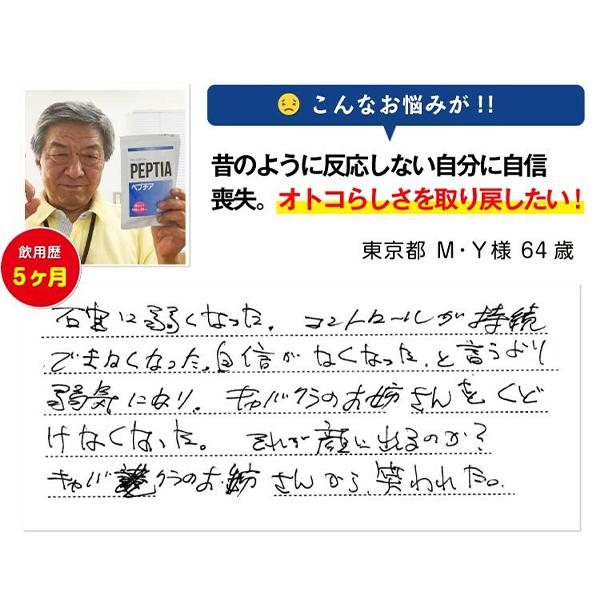 こんなお悩みが!!
昔のように反応しない自分に自信
喪失。オトコらしさを取り戻したい!
東京都 M・Y様 64歳
PEPTIA
ペプチア
飲用歴
5ヶ月
に弱くなった。コントロールが持続
できなくなった。自信がなくなった、と言うより
弱気になり。キャバクラのお姉さんをくど
けなくなった。それが顔に出るのか?
キャバクラのお姉さんから、笑われた。